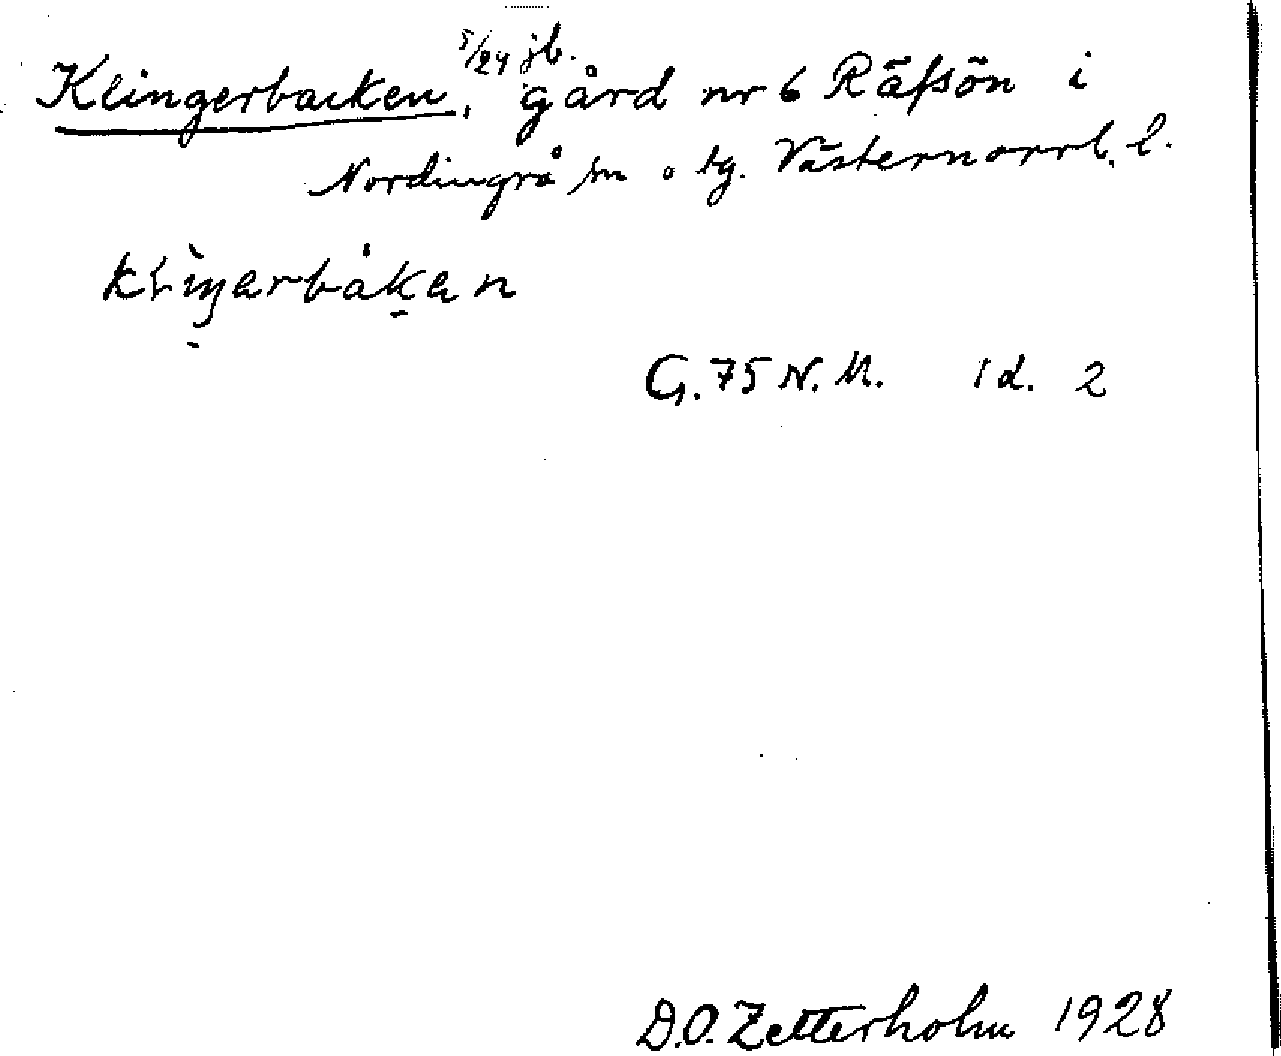 Klingerbacken, 5/24 jb. gård nr 6 Räfsön i
Nordingrå sn o tg. Västernorrl. l.
klìŋarbákan
G. 75 N. M. 1 d. 2
D.O. Zetterholm 1928